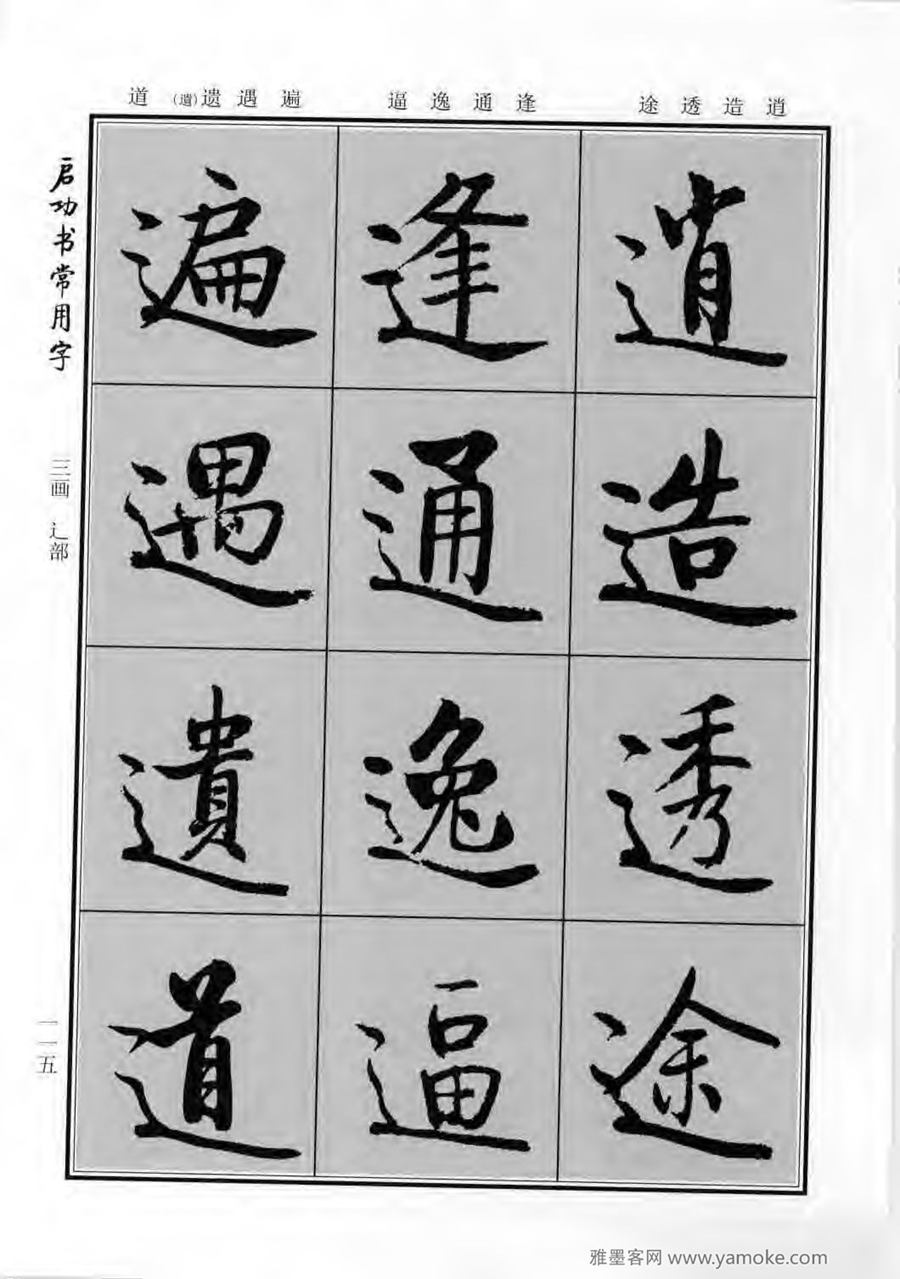 逍造透途
逢通逸逼
遍遇遗(遺)道
逍
造
透
途
逢
通
逸
逼
遍
遇
遺
道
启功书常用字
三画 辶部
一一五
雅墨客网 www.yamoke.com